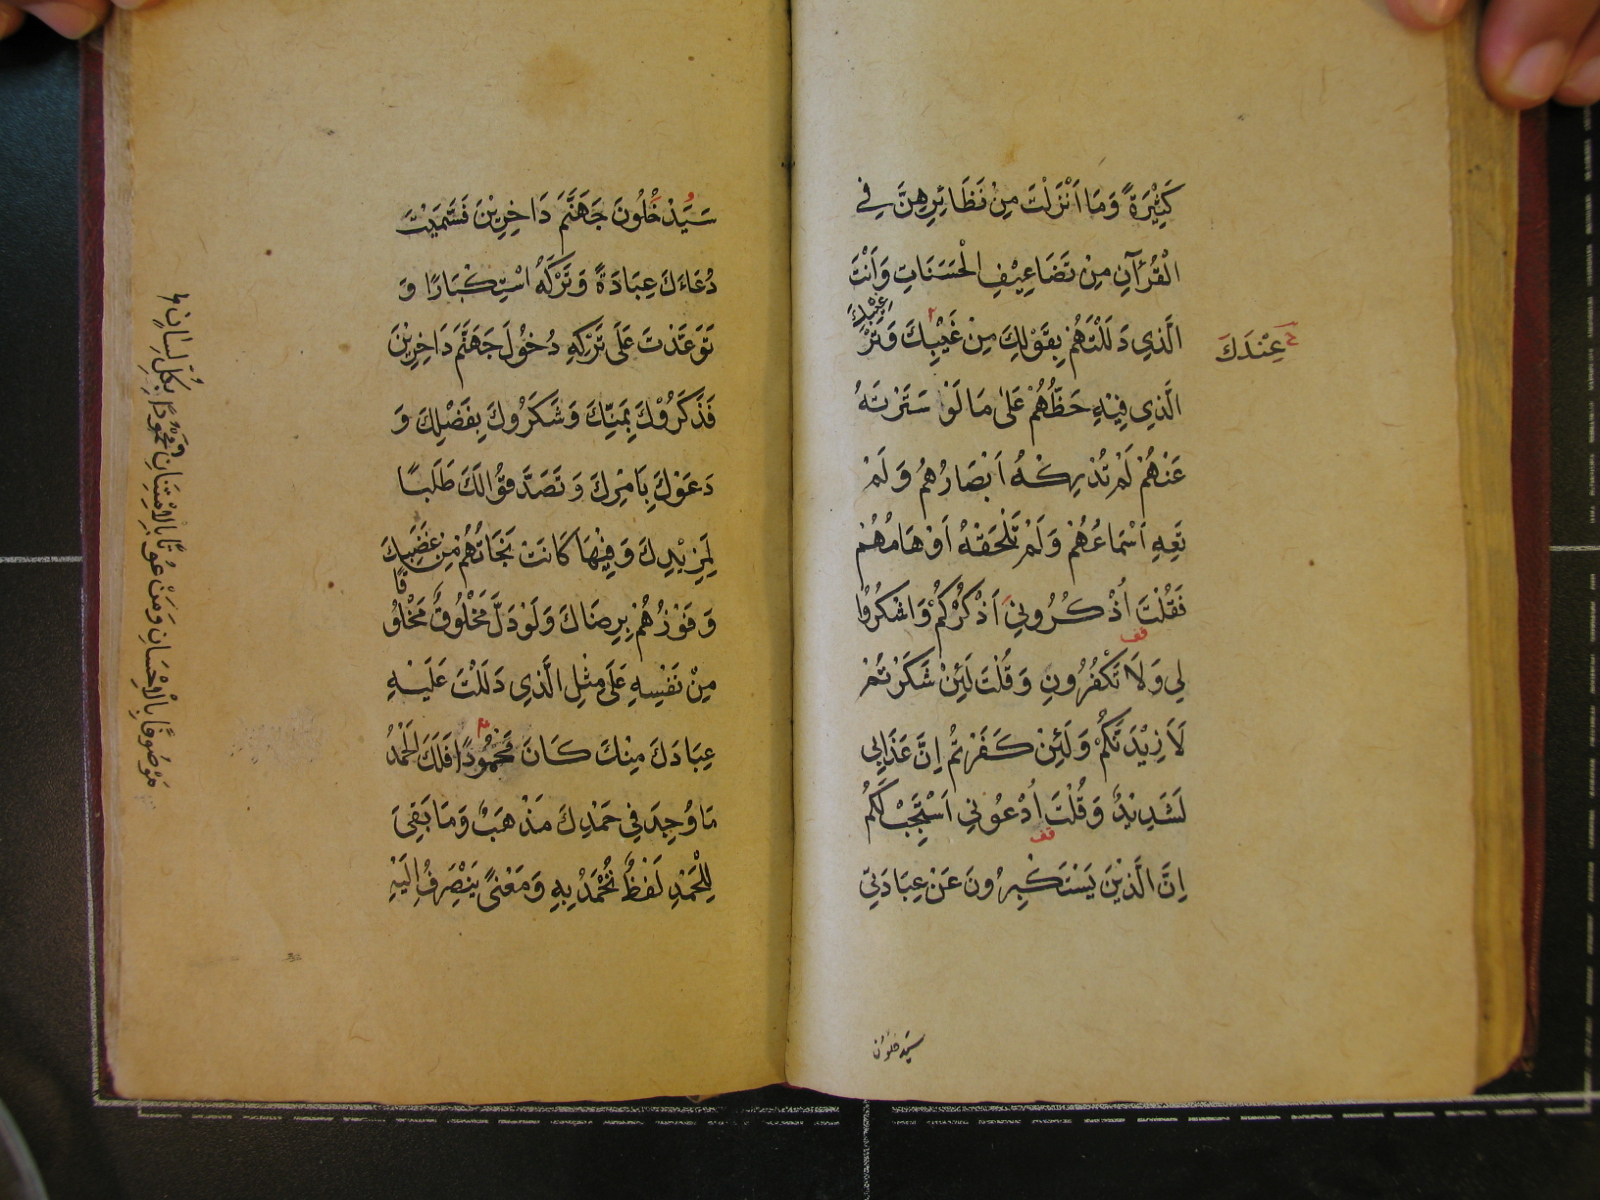 كَثِيْرَةً وَمَا اَنْزَلْتَ مِنْ نَظَائِرِهِنَّ فِي
الْقُرْآنِ مِنْ تَضَاعِيْفِ الْحَسَنَاتِ وَاَنْتَ
الَّذِي دَلَلْتَهُمْ بِقَوْلِكَ مِنْ غَيْبِكَ وَتَرْ
غِيْبِكَ
عِنْدَكَ
الَّذِي فِيْهِ حَظُّهُمْ عَلٰى مَا لَوْ سَتَرْتَهُ
عَنْهُمْ لَمْ تُدْرِكْهُ اَبْصَارُهُمْ وَلَمْ
تَعِهِ اَسْمَاعُهُمْ وَلَمْ تَلْحَقْهُ اَوْهَامُهُمْ
فَقُلْتَ اُذْكُرُونِي اَذْكُرْكُمْ وَاشْكُرُوْا
قف
لِي وَلَا تَكْفُرُونِ وَقُلْتَ لَئِنْ شَكَرْتُمْ
لَاَزِيْدَنَّكُمْ وَلَئِنْ كَفَرْتُمْ اِنَّ عَذَابِي
لَشَدِيْدٌ وَقُلْتَ اُدْعُونِي اَسْتَجِبْ لَكُمْ
قف
اِنَّ الَّذِيْنَ يَسْتَكْبِرُونَ عَنْ عِبَادَتِي
سيدخلون
سَيَدْخُلُونَ جَهَنَّمَ دَاخِرِيْنَ فَسَمَّيْتَ
دُعَاءَكَ عِبَادَةً وَتَرْكَهُ اسْتِكْبَارًا وَ
تَوَعَّدْتَ عَلَى تَرْكِهِ دُخُولَ جَهَنَّمَ دَاخِرِيْنَ
فَذَكَرُوْكَ بِمَنِّكَ وَشَكَرُوكَ بِفَضْلِكَ وَ
دَعَوْكَ بِاَمْرِكَ وَتَصَدَّقُوْا لَكَ طَلَبًا
لِمَزِيْدِكَ وَفِيْهَا كَانَتْ نَجَاتُهُمْ مِنْ غَضَبِكَ
وَفَوْزُهُمْ بِرِضَاكَ وَلَوْ دَلَّ مَخْلُوْقٌ مَخْلُوْ
قًا
مِنْ نَفْسِهِ عَلَى مِثْلِ الَّذِي دَلَلْتَ عَلَيْهِ
عِبَادَكَ مِنْكَ كَانَ مَحْمُوْدًا فَلَكَ الْحَمْدُ
مَا وُجِدَ فِي حَمْدِكَ مَذْهَبٌ وَمَا بَقِيَ
لِلْحَمْدِ لَفْظٌ تُحْمَدُ بِهِ وَمَعْنًى يَنْصَرِفُ اِلَيْهِ
مَوْصُوفًا بِالْاِحْسَانِ وَمَنْعُوتًا بِالْاِمْتِنَانِ وَمَحْمُوْدًا بِكُلِّ لِسَانٍ